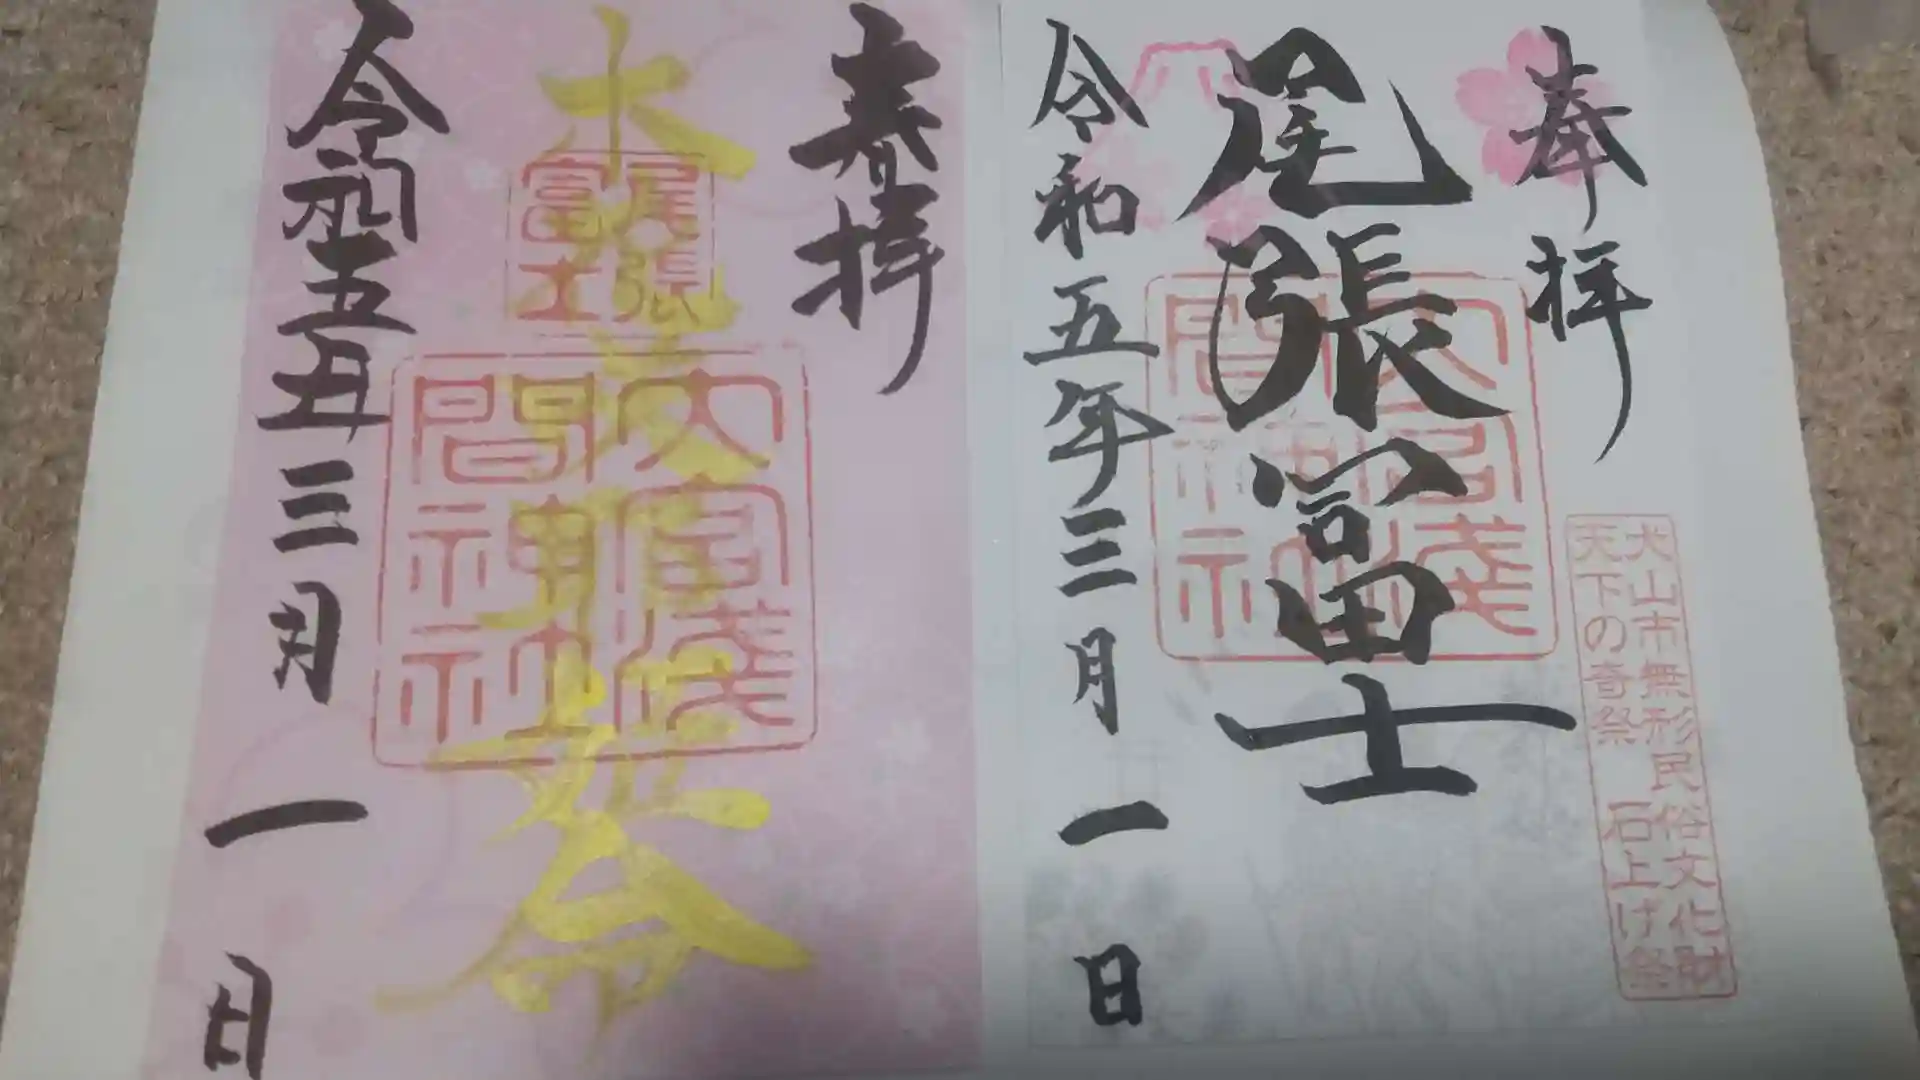 奉拝
犬山市無形民俗文化財
天下の奇祭 石上げ祭
尾張冨士
大宮淺間神社
令和五年三月一日
奉拝
木 姫命
尾張富士
大宮淺間神社
令和五年三月一日